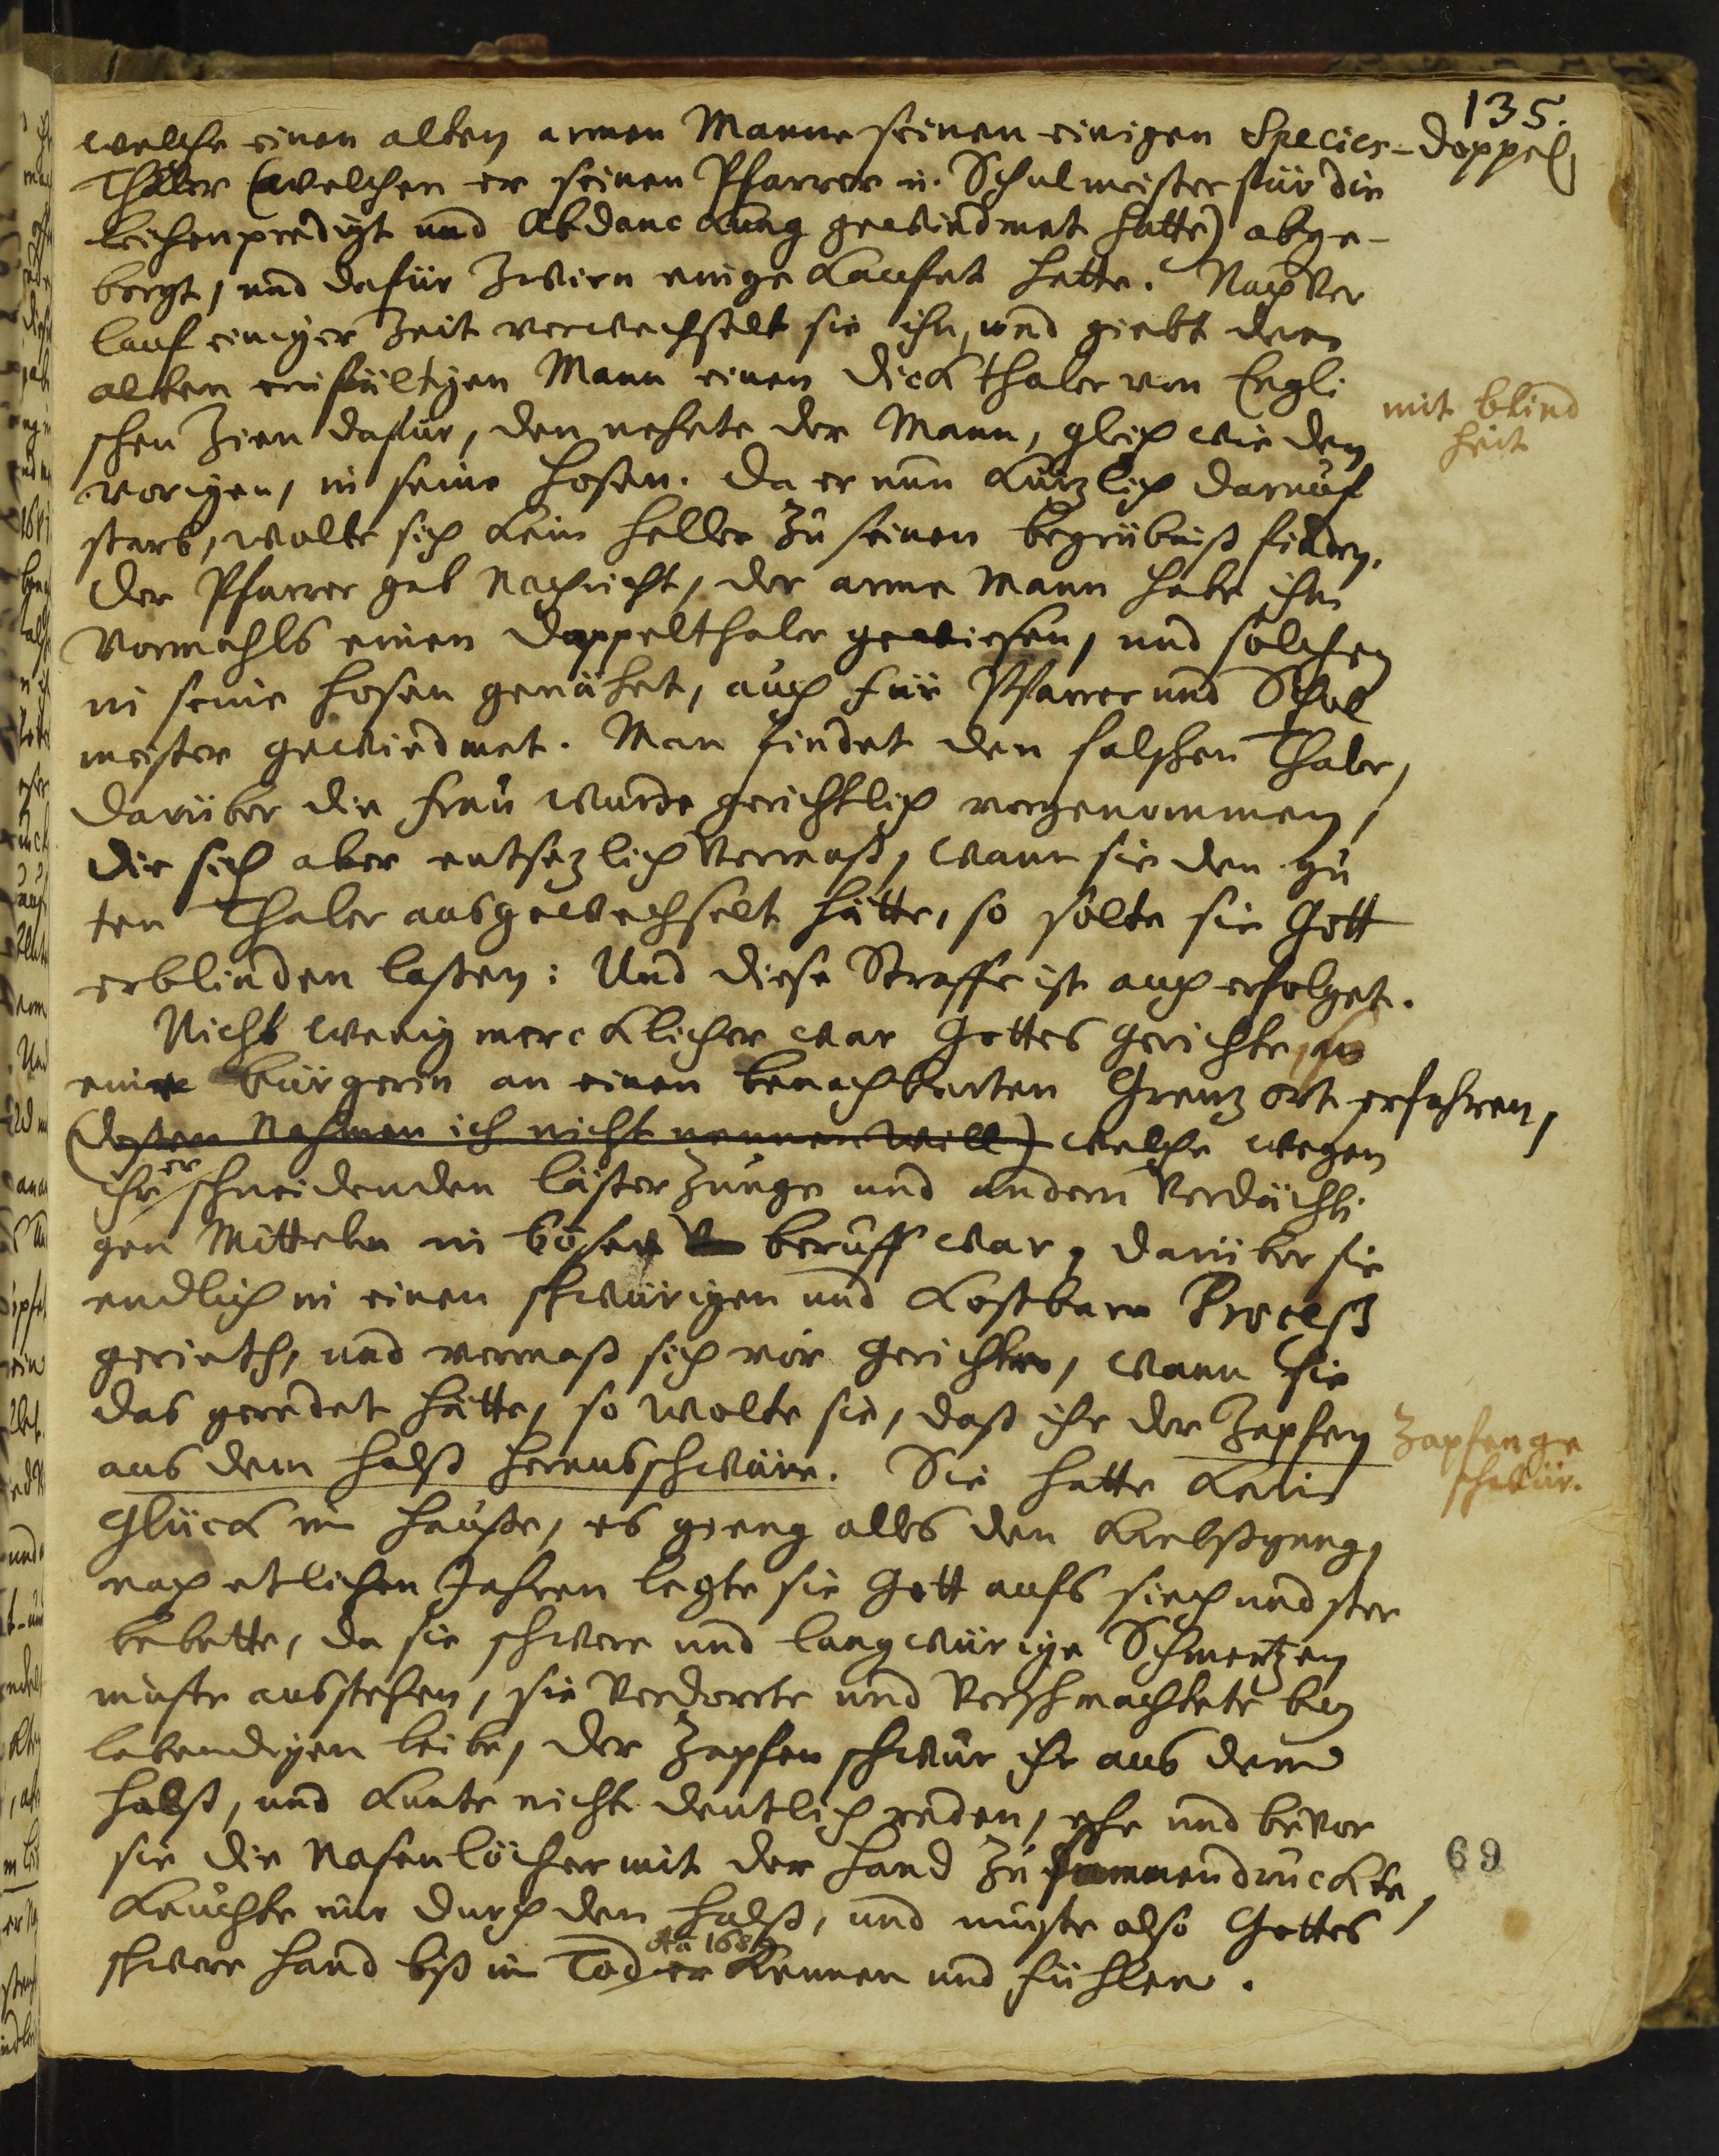 135.
welche einen alten armen Manne seinen einigen Species-Doppel
Thaler (welchen er seinen Pfarrer u. Schulmeister für die
leichenpredigt und Abdanckung gewiedmet hatte) abge-
borgt, und dafür Zwirn einge kaufet hette. Nach Ver
lauf einiger Zeit verwechselt sie ihn, und giebt dem
alten einfältigen Mann einen Dickthaler von Engli
schen Zien dafür, den nehete der Mann, gleich wie den
vorigen, in seine Hosen. Da er nun kürzlich darauf
starb, wolte sich kein Heller zu seinen begräbniß finden.
Der Pfarrer gab Nachricht, der arme Mann habe ihm
Vormahls einen Doppelthaler gewiesen, und solchen
in seine Hosen genähet, auch für Pfarrer und Schul
meister gewiedmet. Man findet den falschen Thaler,
darüber die Frau wurde gerichtlich vorgenommen,
die sich aber entsezlich Vermaß, wann sie den gu
ten Thaler ausgewechselt hätte, so solte sie Gott
erblinden laßen: Und diese Straffe ist auch erfolget.
mit blind
heit
Nicht wenig mercklicher war Gottes Gerichte, so
eine bürgerin an einen benachbarten Grenz ort erfahren,
(deßen Nahmen ich nicht nennen will) welche wegen
ihrer schneidenden läster Zunge und andern Verdächti
gen Mitteln in bösen beruff war, darüber sie
endlich in einen schwürigen und kostbarn Proceß
gerieth, und vermaß sich vor Gerichte, wann sie
das geredet hätte, so wolte sie, daß ihr der Zapfen
aus dem Halß herausschwäre. Sie hatte kein
Zapfen ge
schwür.
Glück im Hauße, es gieng alles den Krebßgang,
nach etlichen Jahren legte sie Gott aufs siech und ster
bebette, da sie schwere und langwürige Schmertzen
muste ausstehen, sie Verdorrte und Verschmachtete bey
lebendigen leibe, der Zapfen schwur ihr aus dem
Halß, und kunte nicht deutlich reden, ehe und bevor
sie die Nasenlöcher mit der Hand zusammendruckte,
69
keuchte nur durch den Halß, und muste also Gottes
schwere Hand biß im Tod erkennen und fühlen.